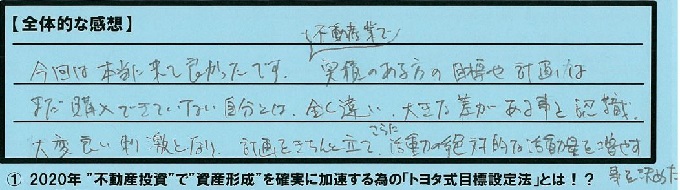 【全体的な感想】
不動産業で
今回は本当に来て良かったです。実績のある方の目標や計画は
まだ購入できていない自分とは、全く違い、大きな差がある事を認識。
さらに
大変良い刺激となり、計画をきちんと立て、活動の絶対的な活動量を増やす
事を決めた
① 2020年 "不動産投資"で"資産形成"を確実に加速する為の「トヨタ式目標設定法」とは！？